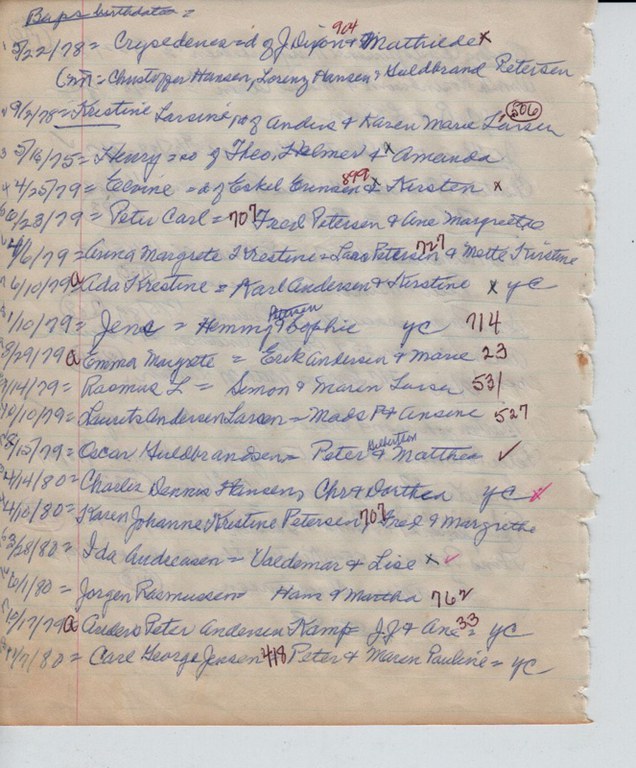 Baps birthdate =
5/22/78 = Crysedence = d of J. Dixon & 904 Mathilde x
= Christoffer Hansen, Lorenz Hansen, Guldbrand Petersen
9/2/78 = Kristine Larsine, d of Anders & Karen Marie Larsen 506
5/16/75 = Henry = so of Theo. Helmer & x Amanda
4/25/79 = Elvine = d of Eskel Evensen 899 & Kirsten x
/23/79 = Peter Carl = 707 Fred Petersen & Ane Margrethe
/6/79 = Anna Margrete Krestine = Lars Petersen 727 & Mette Kirstine
6/10/79 a Ada Krestine = Karl Andersen & Kirstine x yc
1/10/79 = Jens = Hemming Petersen & Sophie yc 714
8/29/79 a Emma Margrete = Erik Andersen & Marie 23
/14/79 = Rasmus L = Simon & Maren Larsen 531
10/10/79 = Laurits Andersen Larsen = Mads P & Ansine 527
/15/79 = Oscar Guldbrandsen = Peter & Matthea ✓
4/14/80 = Charles Dennus Hansen, Chr & Dorthea yc x
4/10/80 = Karen Johanne Kristine Petersen 707 Fred & Margrethe
3/28/80 = Ida Andreasen = Valdemar & Lise x ✓
6/1/80 = Jorgen Rasmussen Hans & Martha 762
/17/79 a Anders Peter Andersen Kamp = J.J & Ane 33 = yc
/7/80 = Carl George Jensen 418 Peter & Maren Pauline = yc